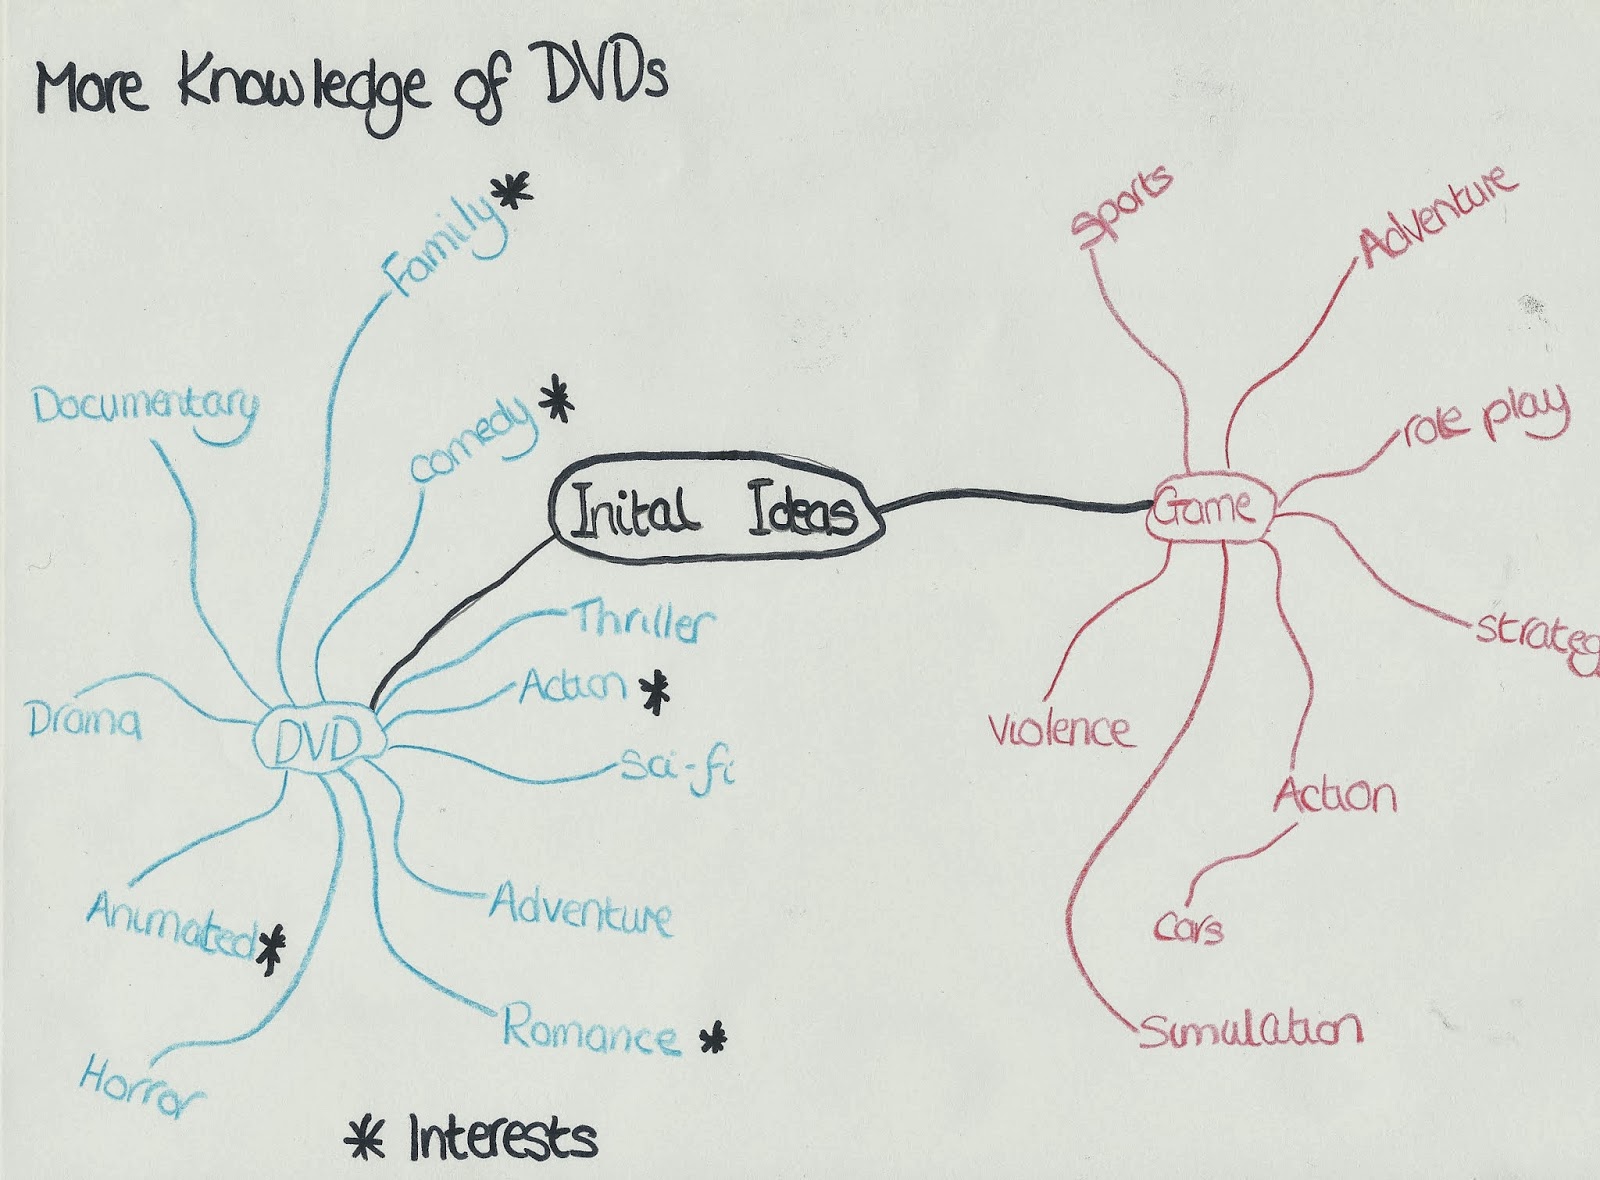 More Knowledge of DVDs
Family *
Documentary
comedy *
Inital Ideas
Thriller
Action *
Sci-fi
Drama
DVD
Animated *
Adventure
Romance *
Horror
* Interests
Sports
Adventure
role play
Game
Strateg
Violence
Action
Cars
Simulation